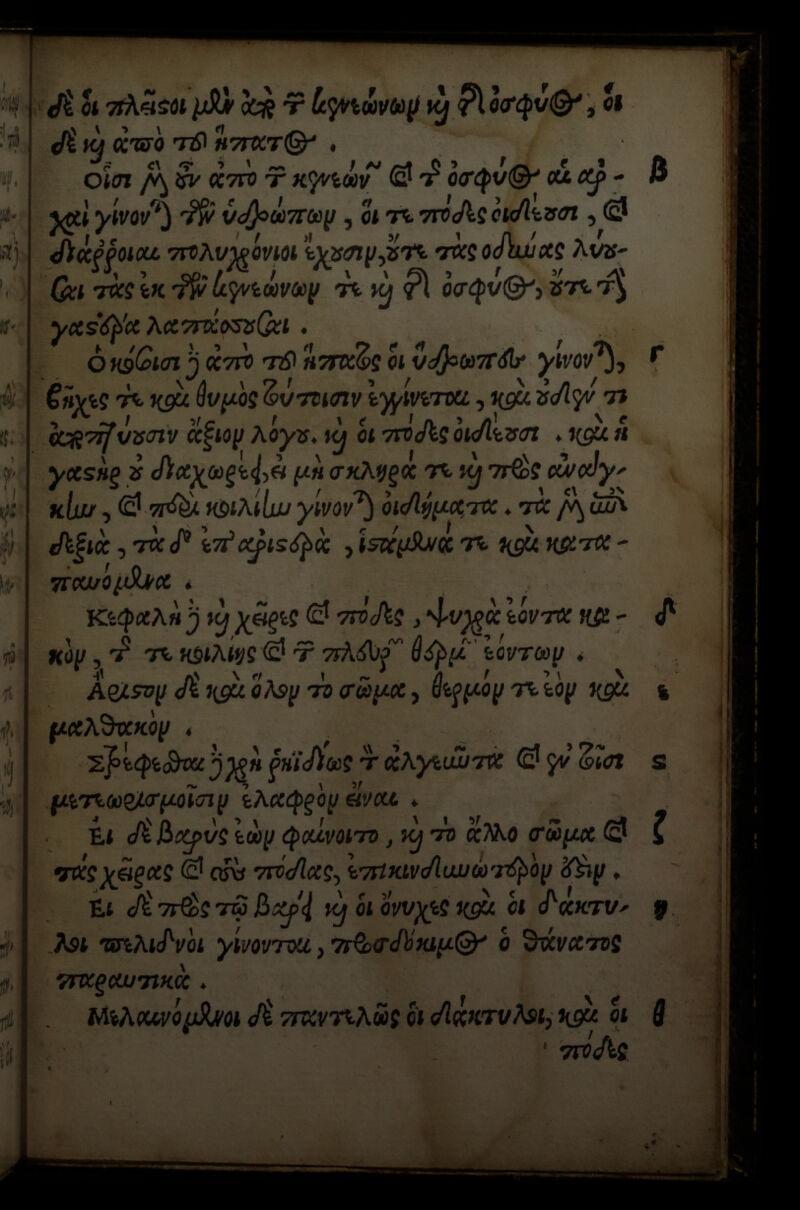 δὲ οἱ πλεῖσοι μὲν ἀπὸ τ κενεώνων κỳ τ ὀσφύος, οἱ
δὲ κỳ ἀπὸ τοῦ ἥπατος.
Οἷσι μὲν οὖν ἀπὸ τ κενεών κỳ τ ὀσφύος αἱ ἀρ- β
χαὶ γίνον) τῶν ὑδρώπων, οἵ τε πόδες οἰδέουσι, κỳ
διάῤῥοιαι πολυχρόνιοι ἔχουσιν, οὔτε τὰς ὀδύνας λύου-
σαι τὰς ἐκ τῶν κενεώνων τε κỳ τ ὀσφύος, οὔτε τὴν
γαστέρα λαπάσσουσαι.
Ὁκόσοισι δὲ ἀπὸ τοῦ ἥπατος οἱ ὕδρωπες γίνον), γ
βῆχές τε καὶ θυμὸς βήσσειν ἐγγίνεται, καὶ οὐδέν τι
ἀποπτύουσιν ἄξιον λόγου. κỳ οἱ πόδες οἰδέουσι. καὶ ἡ
γαστὴρ οὐ διαχωρεῖ, εἰ μὴ σκληρά τε κỳ πρὸς ἀνάγ-
κην, κỳ περὶ κοιλίην γίνον) οἰδήματα. τὰ μὲν ἐπὶ
δεξιὰ, τὰ δ' ἐπ' ἀριστερὰ, ἱστάμενά τε καὶ κατα-
παυόμενα.
Κεφαλὴ δὲ κỳ χεῖρες κỳ πόδες, ψυχρὰ ἐόντα κα- δ
κὸν, τ τε κοιλίης κỳ τ πλευρ θερμ ἐόντων.
Ἄριστον δὲ καὶ ὅλον τὸ σῶμα, θερμόν τε ἐὸν καὶ ε
μαλθακὸν.
Στρέφεσθαι δὲ χρὴ ῥηϊδίως τ ἀλγεῦντα κỳ ἐν τοῖσι ς
μετεωρισμοῖσιν ἐλαφρὸν εἶναι.
Εἰ δὲ βαρὺς ἐὼν φαίνοιτο, κỳ τὸ ἄλλο σῶμα κỳ ζ
τὰς χεῖρας κỳ τοὺς πόδας, ἐπικινδυνώτερόν ἐστιν.
Εἰ δὲ πρὸς τῷ βάρει κỳ οἱ ὄνυχες καὶ οἱ δάκτυ- η
λοι πελιδνοὶ γίνονται, προσδόκιμος ὁ θάνατος
παραυτίκα.
Μελαινόμενοι δὲ παντελῶς οἱ δάκτυλοι, καὶ οἱ θ
πόδες